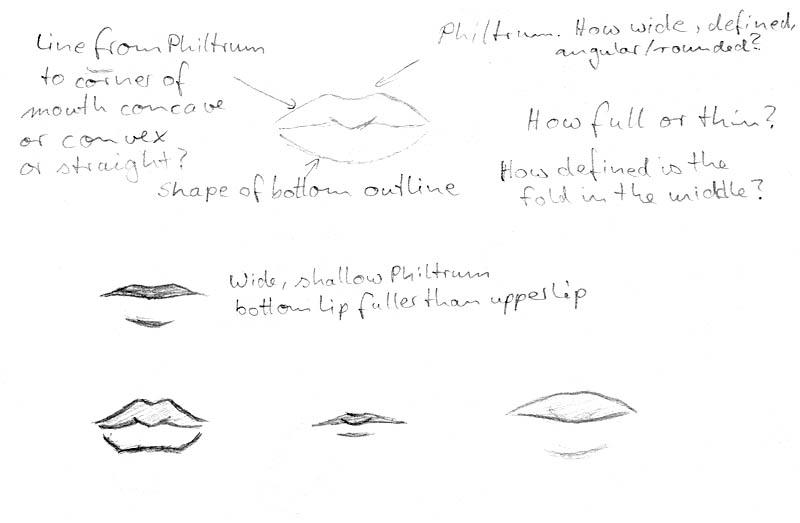 Line from Philtrum
to corner of
mouth concave
or convex
or straight?
Philtrum. How wide, defined,
angular/rounded?
How full or thin?
How defined is the
fold in the middle?
Shape of bottom outline
Wide, shallow Philtrum
bottom lip fuller than upper lip